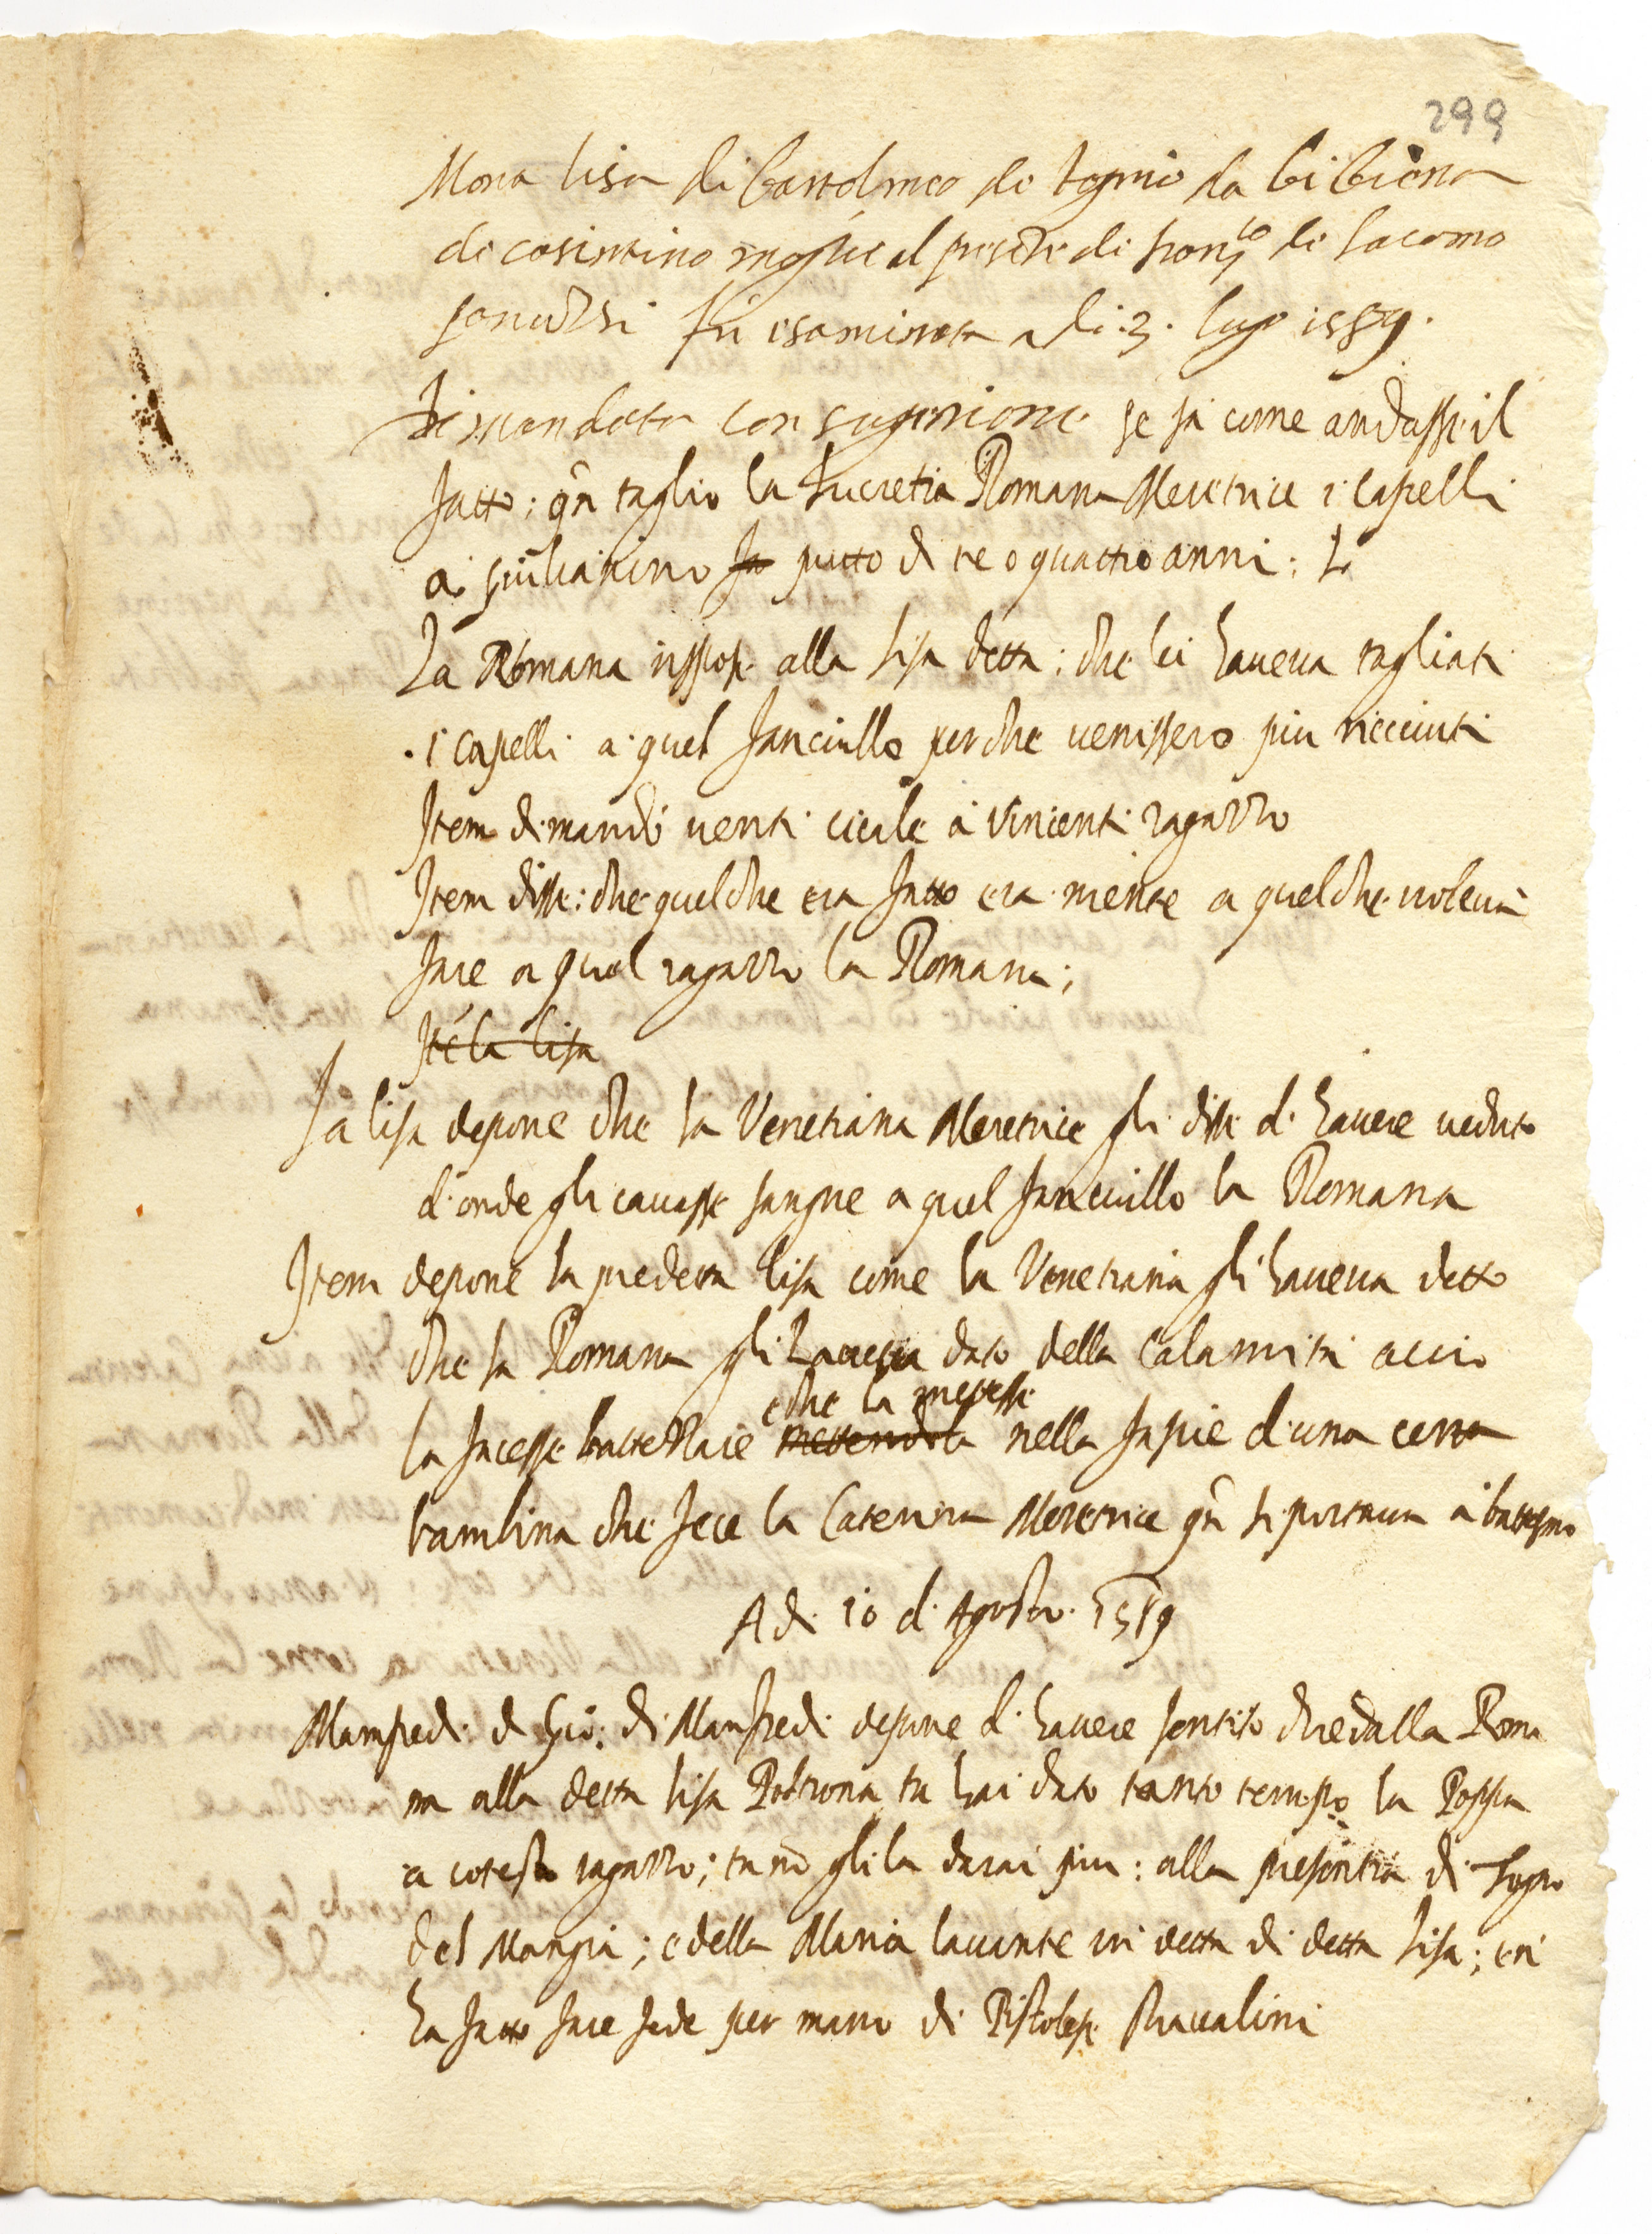 299
Mona lisa di bartolmeo di tognio da bibiena
di casintino moglie al presēte di franc.co di Jacomo
fu esaminata a di .3. lug.o 1589.
Dimandata con se sa come andasse il
fatto; qn̄ taglio la Lucretia Romana Meretrice i capelli
a' giulianino fa putto di tre o quattro anni: L
La Romana rispose alla lisa detta: che lei haueua tagliati
i capelli a' quel fanciullo perche uenissero piu ricciuti
Item dimandò uenti cicale a Vincenti ragazzo
Item disse: che quel che era fatto era niente a quel che uoleua
fare a quel ragazzo la Romana;
Itē la lisa
La lisa depone che la Venetiana Meretrice gli disse d' hauere ueduto
d'onde gli cauasse sangue a quel fanciullo la Romana
Item depone la predetta lisa come la Venetiana gli haueua detto
che la Romana gli haueua dato della calamita accio
e che la mettesse
la facesse battezzare mettendola nelle fascie d'una certa
bambina che fece la Caterina Meretrice qn̄ si portaua a battesmo
A di 10 d' Agosto. 1589
Manfredi di Giō: di Manfredi depone d' hauere sentito dire dalla Roma
na alla detta lisa Poltrona tu hai dato tanto tempo la Poppa
a cotesto ragazzo; tu nō gli la darai piu: alla presentia di Togno
del Mangia; e della Maria lauante in detta di detta lisa; e n'
ha fatto fare fede per mano di Pistolese